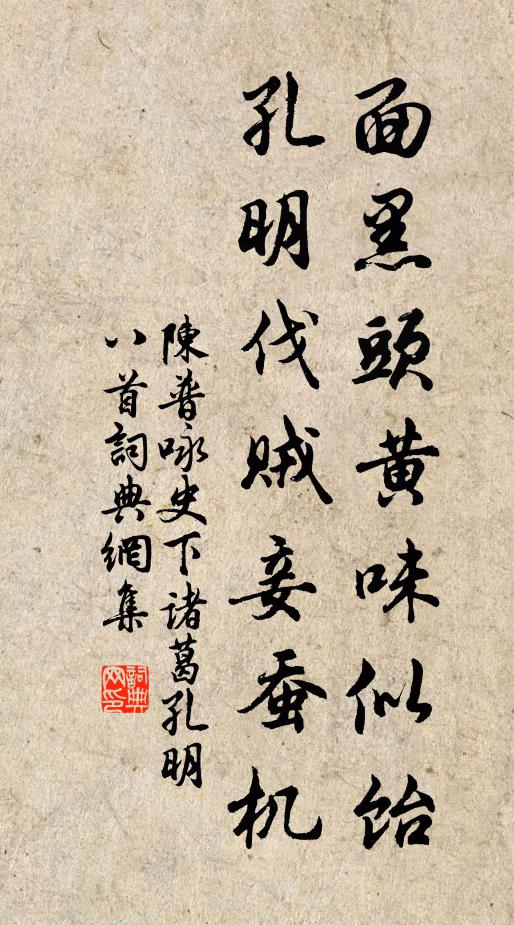 面黑頭黄味似飴
孔明伐贼妾蚕机
陳普咏史下诸葛孔明
八首詞典網集
詞典网印